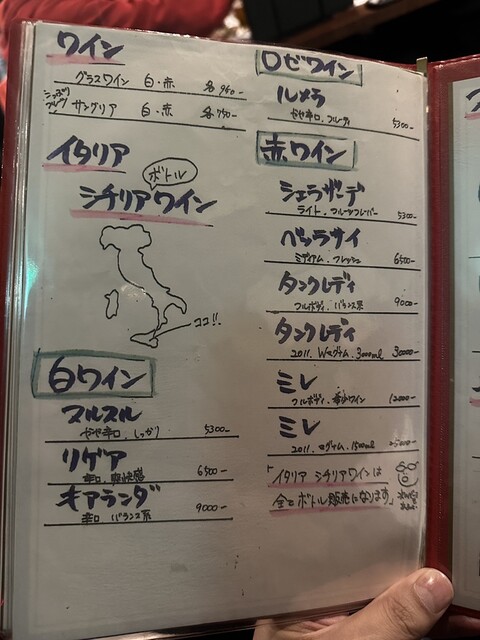 ワイン
グラスワイン 白・赤 各960-
サングリア 白・赤 各750-
イタリア
ボトル
シチリアワイン
ココ!!
白ワイン
フルスル
やや辛口、しっかり 5300-
リゲア
辛口、爽快感 6500-
キアランダ
辛口 バランス系 9000-
ロゼワイン
ルメラ
やや辛口、フルーティ 5300-
赤ワイン
シェラザーデ
ライト、フルーツフレーバー 5300-
ベッラサイ
ミディアム、フレッシュ 6500-
タンクレディ
フルボディ、バランス系 9000-
タンクレディ
2011、Wマグナム、3000ml 30000-
ミレ
フルボディ、希少ワイン 12000-
ミレ
2011、マグナム、1500ml
「イタリア シチリアワインは
全てボトル販売になります」